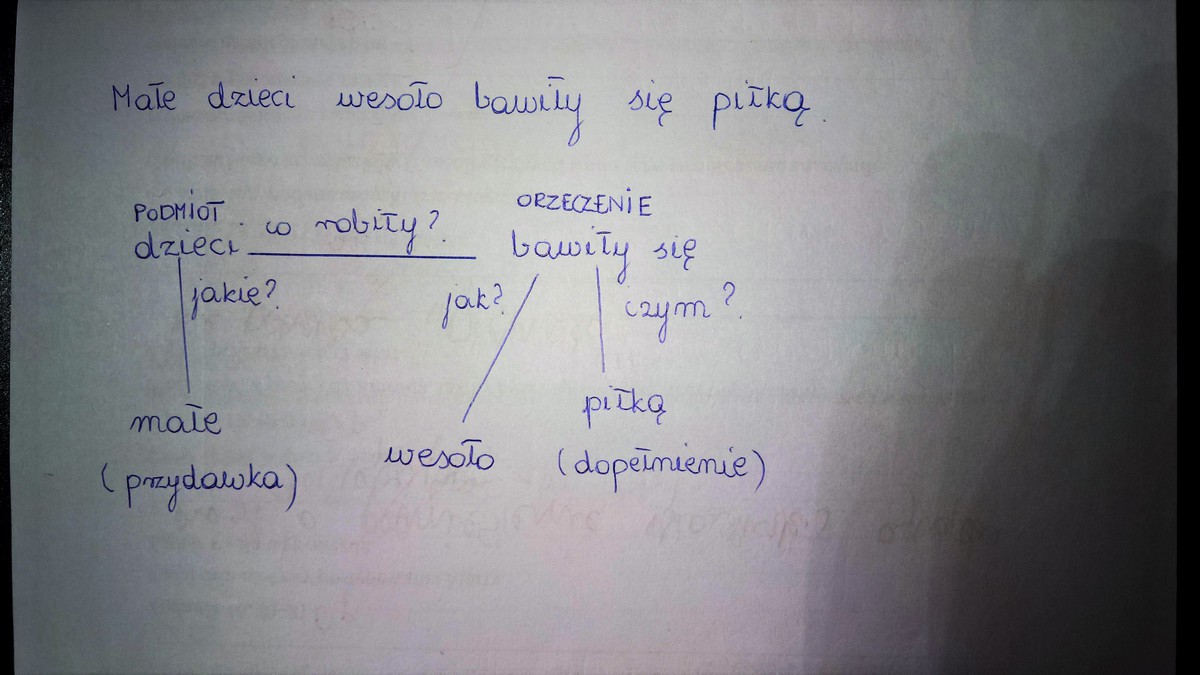 Małe dzieci wesoło bawiły się piłką.
PODMIOT ORZECZENIE
dzieci co robiły? bawiły się
jakie? jak? czym?
małe wesoło piłką
(przydawka) (dopełnienie)